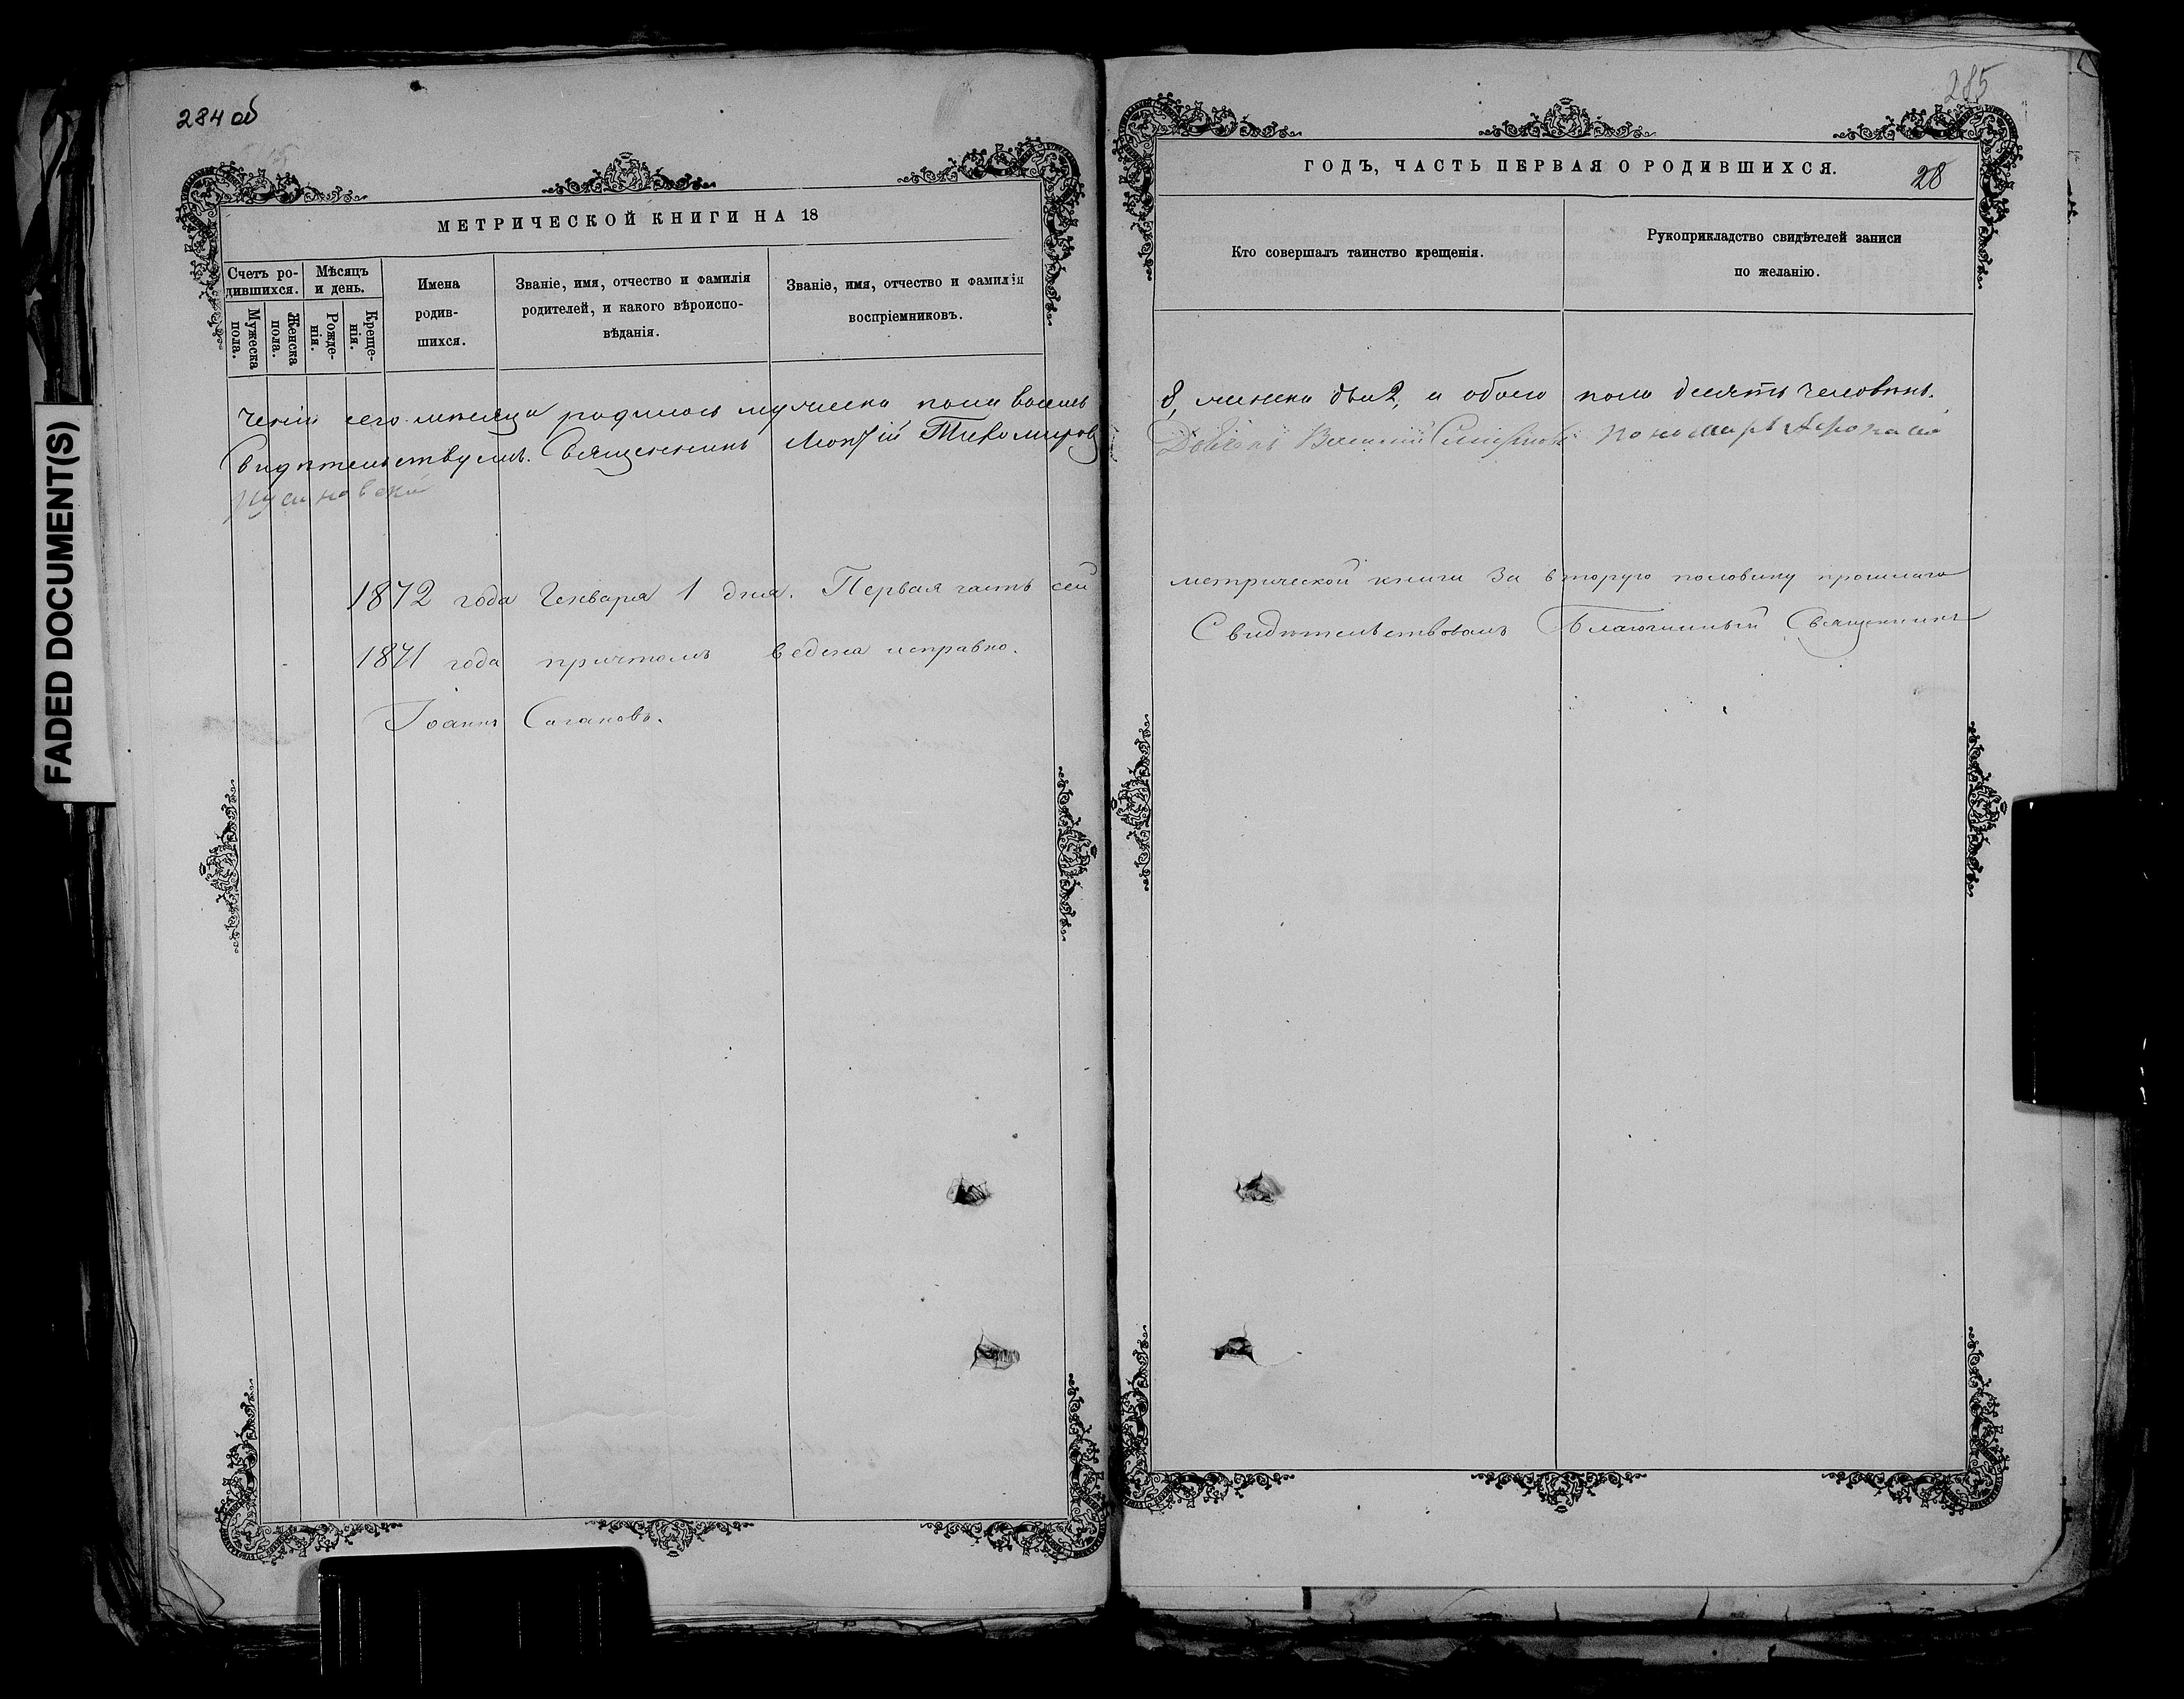 284 об
МЕТРИЧЕСКОЙ КНИГИ НА 18
Счетъ ро-
дившихся.
Мѣсяцъ
и день.
Мужеска
пола.
Женска
пола.
Рожде-
нія.
Креще-
нія.
Имена
родив-
шихся.
Званіе, имя, отчество и фамилія
родителей, и какого вѣроиспо-
вѣданія.
Званіе, имя, отчество и фамилія
воспріемниковъ.
ченіи сего мѣсяца родилось мужеска пола восемь
Свидѣтельствуемъ. Священникъ Тихомировъ
1872 года Генваря 1 дня. Первая часть сей
1871 года причтомъ ведена исправно.
Іоаннъ Сагановъ.
FADED DOCUMENT(S)
285
ГОДЪ, ЧАСТЬ ПЕРВАЯ О РОДИВШИХСЯ.
28
Кто совершалъ таинство крещенія.
Рукоприкладство свидѣтелей записи
по желанію.
8, женска два 2, и обоего пола десять человѣкъ.
Дьяконъ Василий Смирновъ Пономарь
метрической книги за вторую половину прошлаго
Свидѣтельствовалъ Благочинный Священникъ